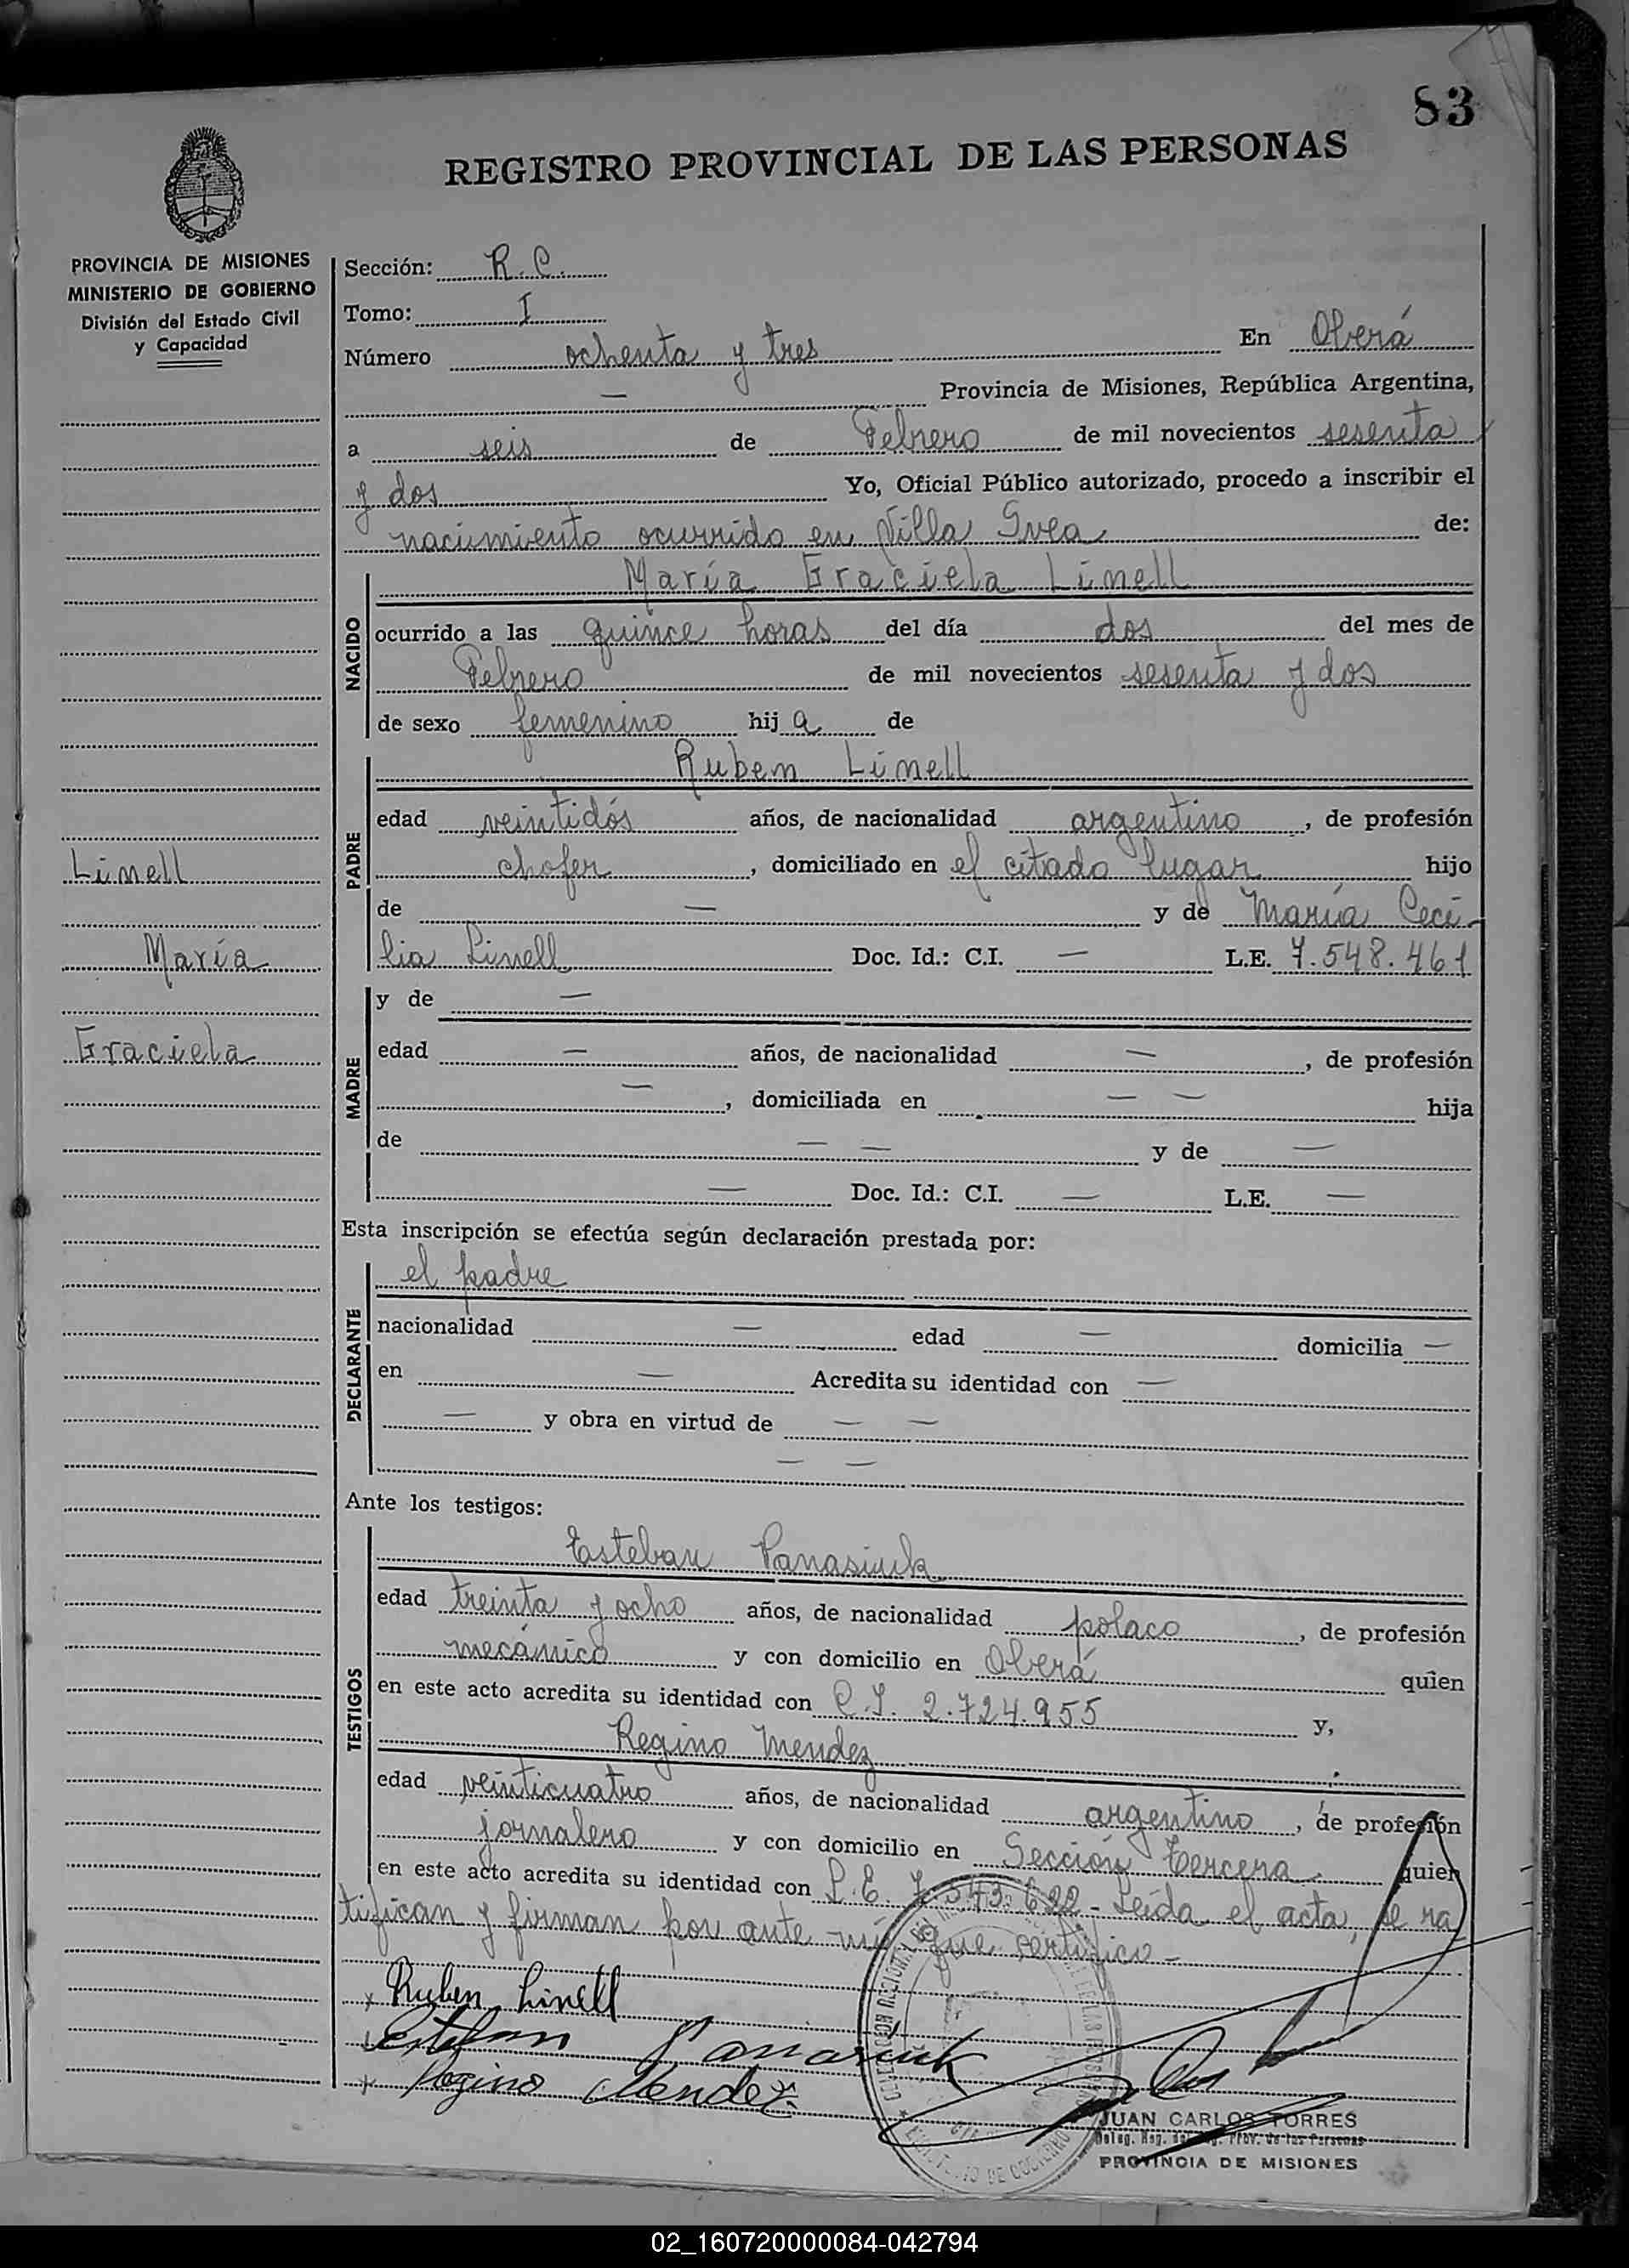 83
REGISTRO PROVINCIAL DE LAS PERSONAS
PROVINCIA DE MISIONES
MINISTERIO DE GOBIERNO
División del Estado Civil
y Capacidad
Linell
María
Graciela
Sección: R. C.
Tomo: I
Número ochenta y tres En Oberá
— Provincia de Misiones, República Argentina,
a seis de Febrero de mil novecientos sesenta
y dos Yo, Oficial Público autorizado, procedo a inscribir el
nacimiento ocurrido en Villa Svea de:
NACIDO
María Graciela Linell
ocurrido a las quince horas del día dos del mes de
Febrero de mil novecientos sesenta y dos
de sexo femenino hija de
PADRE
Ruben Linell
edad veintidós años, de nacionalidad argentino, de profesión
chofer, domiciliado en el citado lugar hijo
de — y de María Ceci-
lia Linell Doc. Id.: C.I. — L.E. 7.548.461
MADRE
y de —
edad — años, de nacionalidad —, de profesión
—, domiciliada en — — hija
de — — y de —
— Doc. Id.: C.I. — L.E. —
Esta inscripción se efectúa según declaración prestada por:
DECLARANTE
el padre
nacionalidad — edad — domicilia —
en — Acredita su identidad con —
— y obra en virtud de — —
— —
Ante los testigos:
TESTIGOS
Esteban Panasiuk
edad treinta y ocho años, de nacionalidad polaco, de profesión
mecánico y con domicilio en Oberá quien
en este acto acredita su identidad con C.I. 2.724.955 y,
Regino Mendez
edad veinticuatro años, de nacionalidad argentino, de profesión
jornalero y con domicilio en Sección Tercera quien
en este acto acredita su identidad con L.E. 7.543.622 - Leída el acta, se ra
tifican y firman por ante mí que certifico -
x Ruben Linell
x Esteban Panasiuk
x Regino Mendez
JUAN CARLOS TORRES
Deleg. Reg. del Reg. Prov. de las Personas
PROVINCIA DE MISIONES
02_160720000084-042794